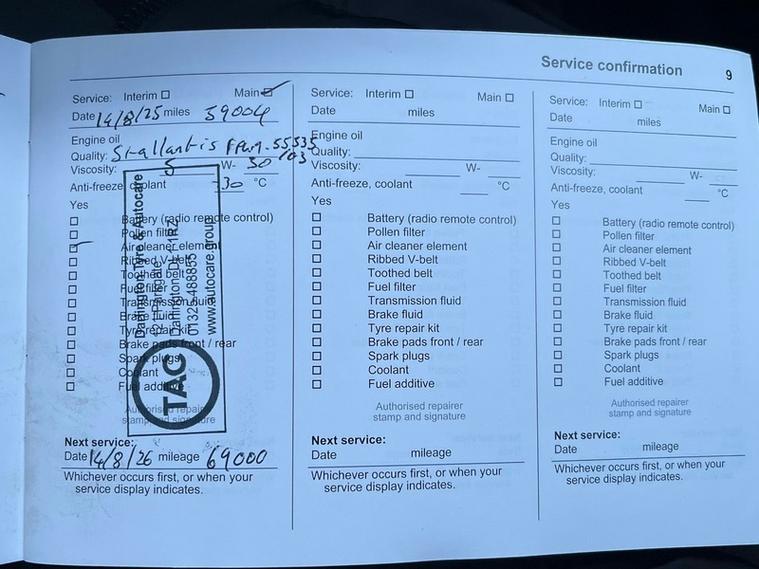 Service confirmation 9
Service: Interim Main
Date 14/8/25 miles 59004
Engine oil
Quality: Stallantis FPW9.55535
/03
Viscosity: 5 W- 30
Anti-freeze, coolant -30 °C
Yes
Battery (radio remote control)
Pollen filter
Air cleaner element
Ribbed V-belt
Toothed belt
Fuel filter
Transmission fluid
Brake fluid
Tyre repair kit
Brake pads front / rear
Spark plugs
Coolant
Fuel additive
Authorised repairer
stamp and signature
Darlington Tyre & Autocare
Parkgate
Darlington DL1 1RZ
01325 488855
www.autocare.group
TAC
Next service:
Date 14/8/26 mileage 69000
Whichever occurs first, or when your
service display indicates.
Service: Interim Main
Date miles
Engine oil
Quality:
Viscosity: W-
Anti-freeze, coolant °C
Yes
Battery (radio remote control)
Pollen filter
Air cleaner element
Ribbed V-belt
Toothed belt
Fuel filter
Transmission fluid
Brake fluid
Tyre repair kit
Brake pads front / rear
Spark plugs
Coolant
Fuel additive
Authorised repairer
stamp and signature
Next service:
Date mileage
Whichever occurs first, or when your
service display indicates.
Service: Interim Main
Date miles
Engine oil
Quality:
Viscosity: W-
Anti-freeze, coolant °C
Yes
Battery (radio remote control)
Pollen filter
Air cleaner element
Ribbed V-belt
Toothed belt
Fuel filter
Transmission fluid
Brake fluid
Tyre repair kit
Brake pads front / rear
Spark plugs
Coolant
Fuel additive
Authorised repairer
stamp and signature
Next service:
Date mileage
Whichever occurs first, or when your
service display indicates.